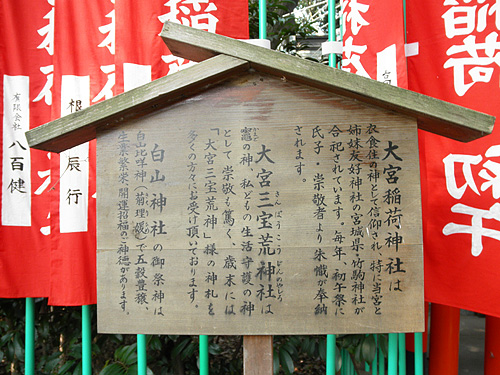 稲荷
初午
大宮稲荷神社は
衣食住の神として信仰され、特に当宮と
姉妹友好神社の宮城県・竹駒神社が
合祀されています。毎年、初午祭に
氏子・崇敬者より朱幟が奉納
されます。
大宮三宝荒神社は
竈の神、私どもの生活守護の神
として崇敬も篤く、歳末には
「大宮三宝荒神」様の神札を
多くの方々にお受け頂いております。
白山神社の御祭神は
白山比咩神(菊理媛)で五穀豊穣、
生業繁栄、開運招福の神徳があります。
辰行
有限会社 八百健